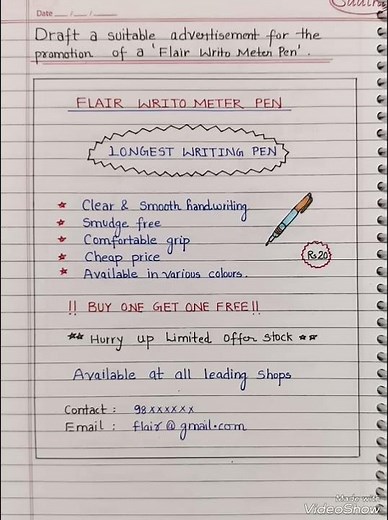 Date __/__/__
Draft a suitable advertisement for the
promotion of a 'Flair Writo Meter Pen'.
FLAIR WRITO METER PEN
LONGEST WRITING PEN
★ Clear & Smooth handwriting
★ Smudge free
★ Comfortable grip
★ Cheap price
★ Available in various colours.
Rs 20
!! BUY ONE GET ONE FREE!!
★★ Hurry up Limited offer stock ★★
Available at all leading shops
Contact : 98xxxxxx
Email : flair@gmail.com
Made with
VideoShow